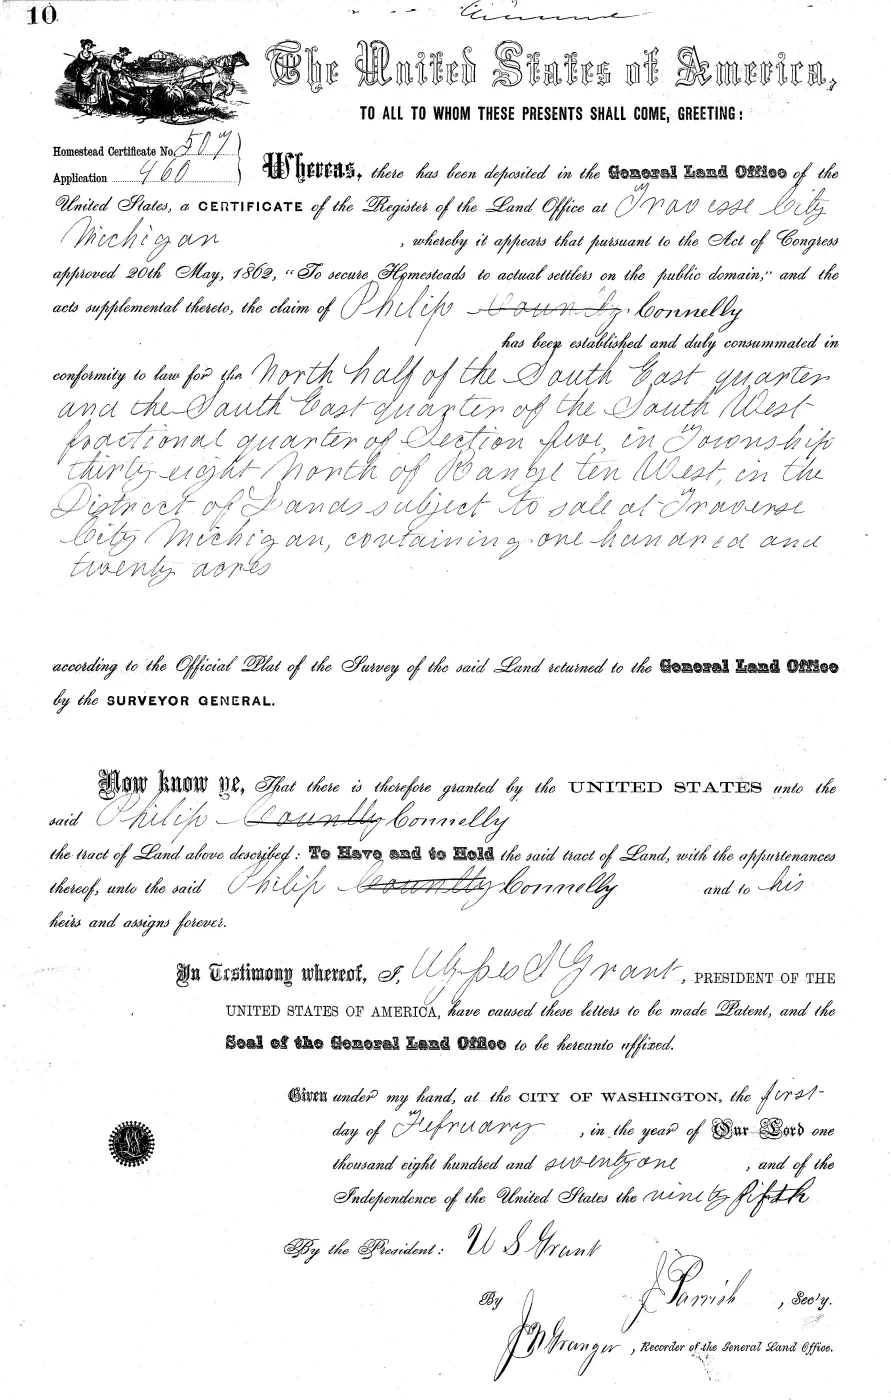 10
The United States of America,
TO ALL TO WHOM THESE PRESENTS SHALL COME, GREETING:
Homestead Certificate No. 507
Application 460
Whereas, there has been deposited in the General Land Office of the
United States, a CERTIFICATE of the Register of the Land Office at Travesse City
Michigan , whereby it appears that pursuant to the Act of Congress
approved 20th May, 1862, "To secure Homesteads to actual settlers on the public domain," and the
acts supplemental thereto, the claim of Philip Countly Connelly
has been established and duly consummated in
conformity to law for the North half of the South East quarter
and the South East quarter of the South West
fractional quarter of Section five, in Township
thirty eight North of Range ten West, in the
District of Lands subject to sale at Traverse
City Michigan, containing one hundred and
twenty acres
according to the Official Plat of the Survey of the said Land returned to the General Land Office
by the SURVEYOR GENERAL.
Now know ye, That there is therefore granted by the UNITED STATES unto the
said Philip Countly Connelly
the tract of Land above described: To Have and to Hold the said tract of Land, with the appurtenances
thereof, unto the said Philip Countly Connelly and to his
heirs and assigns forever.
In Testimony whereof, I, Ulysses S Grant, PRESIDENT OF THE
UNITED STATES OF AMERICA, have caused these letters to be made Patent, and the
Seal of the General Land Office to be hereunto affixed.
Given under my hand, at the CITY OF WASHINGTON, the first
day of February , in the year of Our Lord one
thousand eight hundred and seventy one , and of the
Independence of the United States the ninety fifth
By the President: U S Grant
By J Parrish , Sec'y.
J N Granger , Recorder of the General Land Office.